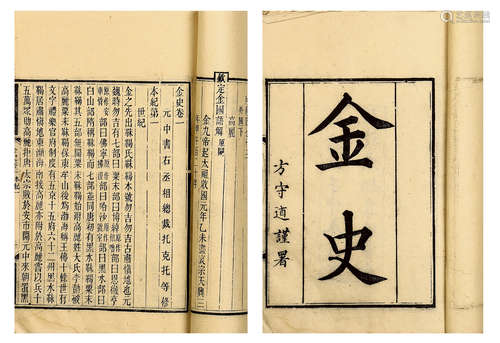 金史
方守道謹署
高麗
欽定金國語解 原闕
金九帝起太祖收國元年乙未盡哀宗天興三
金史卷一
元中書右丞相總裁托克托等修
本紀第一
世紀
金之先出靺鞨氏靺鞨本號勿吉勿吉古肅慎地也元
魏時勿吉有七部曰粟末部曰
部曰黑水部曰
白山部隋稱靺鞨而七部並同唐初有黑水靺鞨粟末
靺鞨其五部無聞粟末靺鞨始附高麗姓大氏李勣破
高麗粟末靺鞨保東牟山後為渤海稱王傳十餘世有
文字禮樂官府制度有五京十五府六十二州黑水靺
鞨居肅慎地東瀕海南接高麗亦附於高麗嘗以兵十
五萬眾助高麗拒唐太宗敗於安市開元中來朝置黑